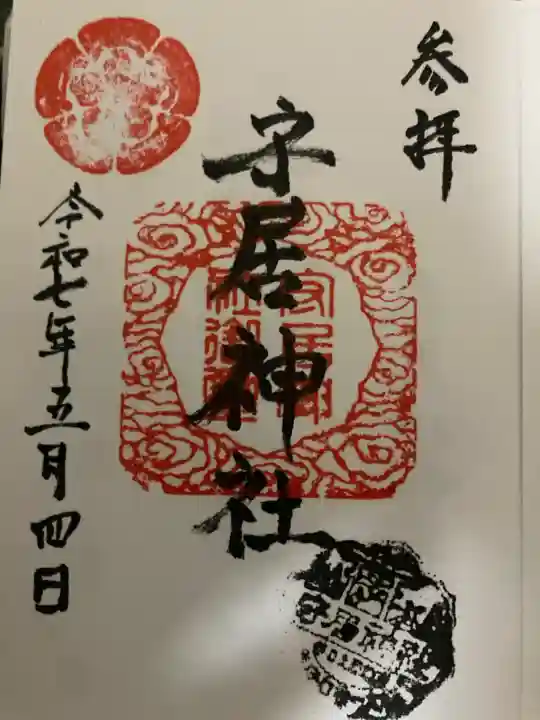 参拝
安居神社
令和七年五月四日